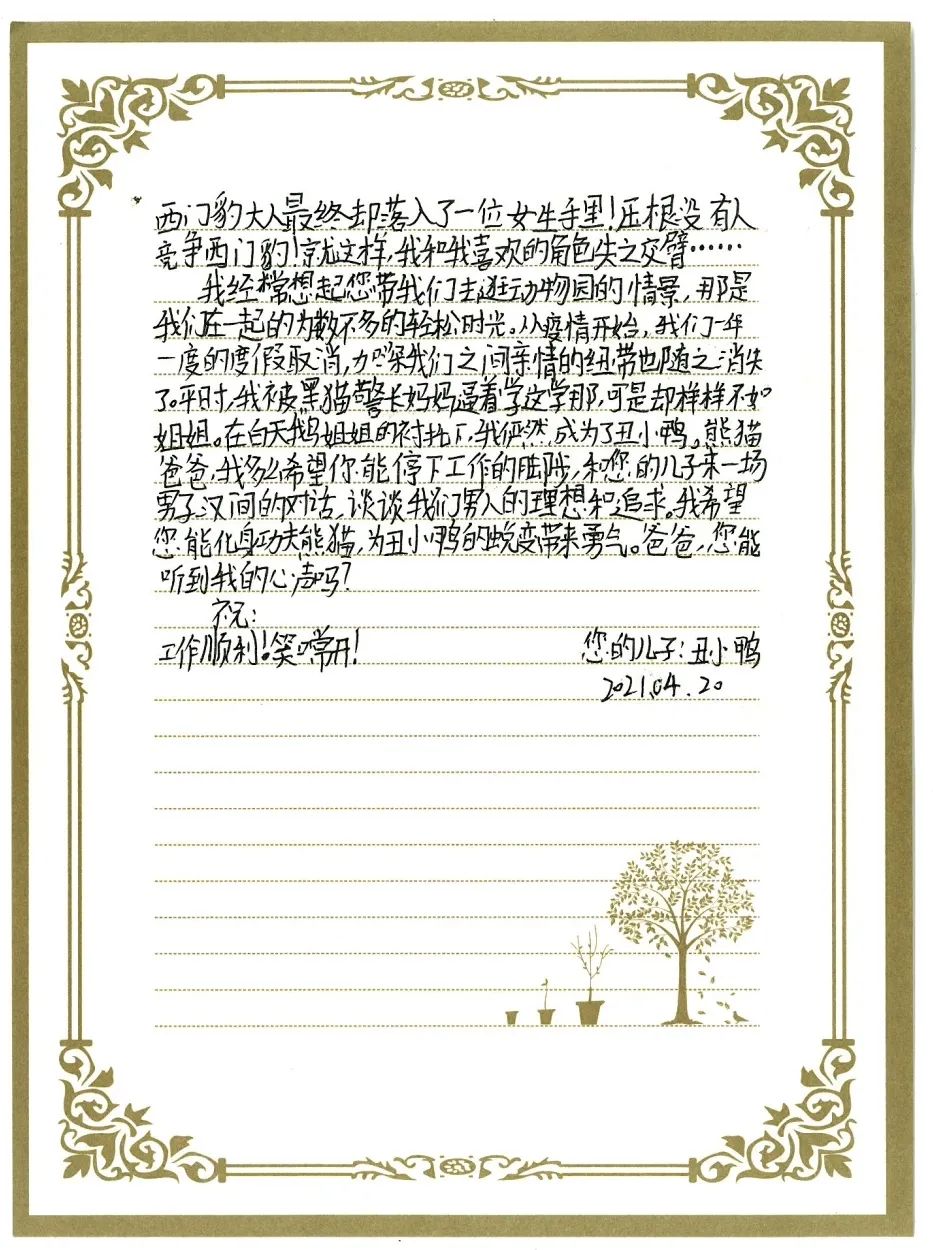 西门豹大人最终却落入了一位女生手里!压根没有人
竞争西门豹!就这样,我和我喜欢的角色失之交臂……
我经常想起您带我们去逛动物园的情景,那是
我们在一起的为数不多的轻松时光。从疫情开始,我们一年
一度的度假取消,加深我们之间亲情的纽带也随之消失
了。平时,我被黑猫警长妈妈逼着学这学那,可是却样样不如
姐姐。在白天鹅姐姐的衬托下,我俨然成为了丑小鸭。熊猫
爸爸,我多么希望你能停下工作的脚步,和您的儿子来一场
男子汉间的对话,谈谈我们男人的理想和追求。我希望
您能化身功夫熊猫,为丑小鸭的蜕变带来勇气。爸爸,您能
听到我的心声吗?
祝:
工作顺利!笑口常开!
您的儿子:丑小鸭
2021.04.20